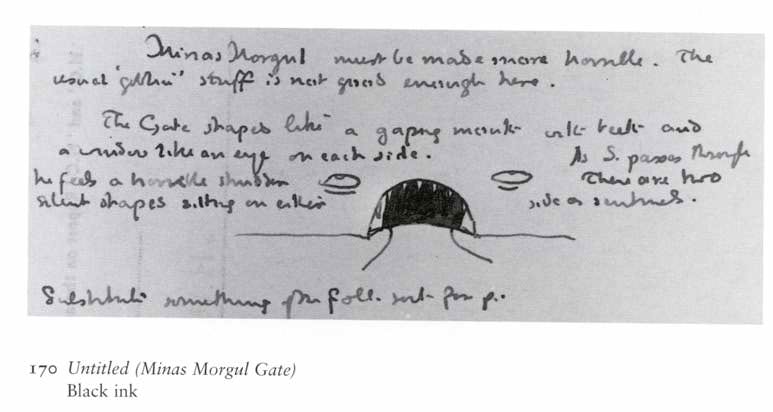 Minas Morgul must be made more horrible. The
usual 'goblin' stuff is not good enough here.
The Gate shaped like a gaping mouth with teeth and
a window like an eye on each side.
As S. passes through
he feels a horrible shudder
There are two
silent shapes sitting on either
side as sentinels.
Substitute something of the foll. sort for p.
170 Untitled (Minas Morgul Gate)
Black ink